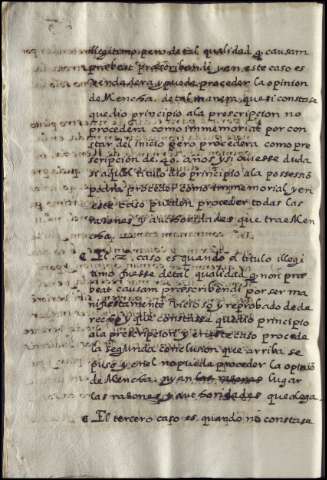 illegitimo, pero de tal qualidad q̃ causam
præbeat præscribendi y en este caso es
verdadera y puede proceder la opinion
de Mencha. de tal manera que si constase
que dio principio a la prescripcion no
procederâ como immemorial por con
star del inicio pero procedera como pre
scripcion de .40. años y si ouiesse duda
si aquel titulo dio principio a la possessiõ
podria proceder como immemorial y en
este caso pueden proceder todas las
razones y auctoridades que trae Men
cha.
El .2.º caso es quando el titulo illegi
timo fuesse de tal qualidad q̃ non præ
beat causam præscribendi por ser ma
nifiestamente vicioso y reprobado de de
recho y que constasse que dio principio
a la prescripcion y en este caso procede
la segunda conclusion que arriba se
puso y en el no puede proceder la opiniõ
de Mencha, lugar
las razones y auctoridades que alega.
El tercero caso es quando no constase